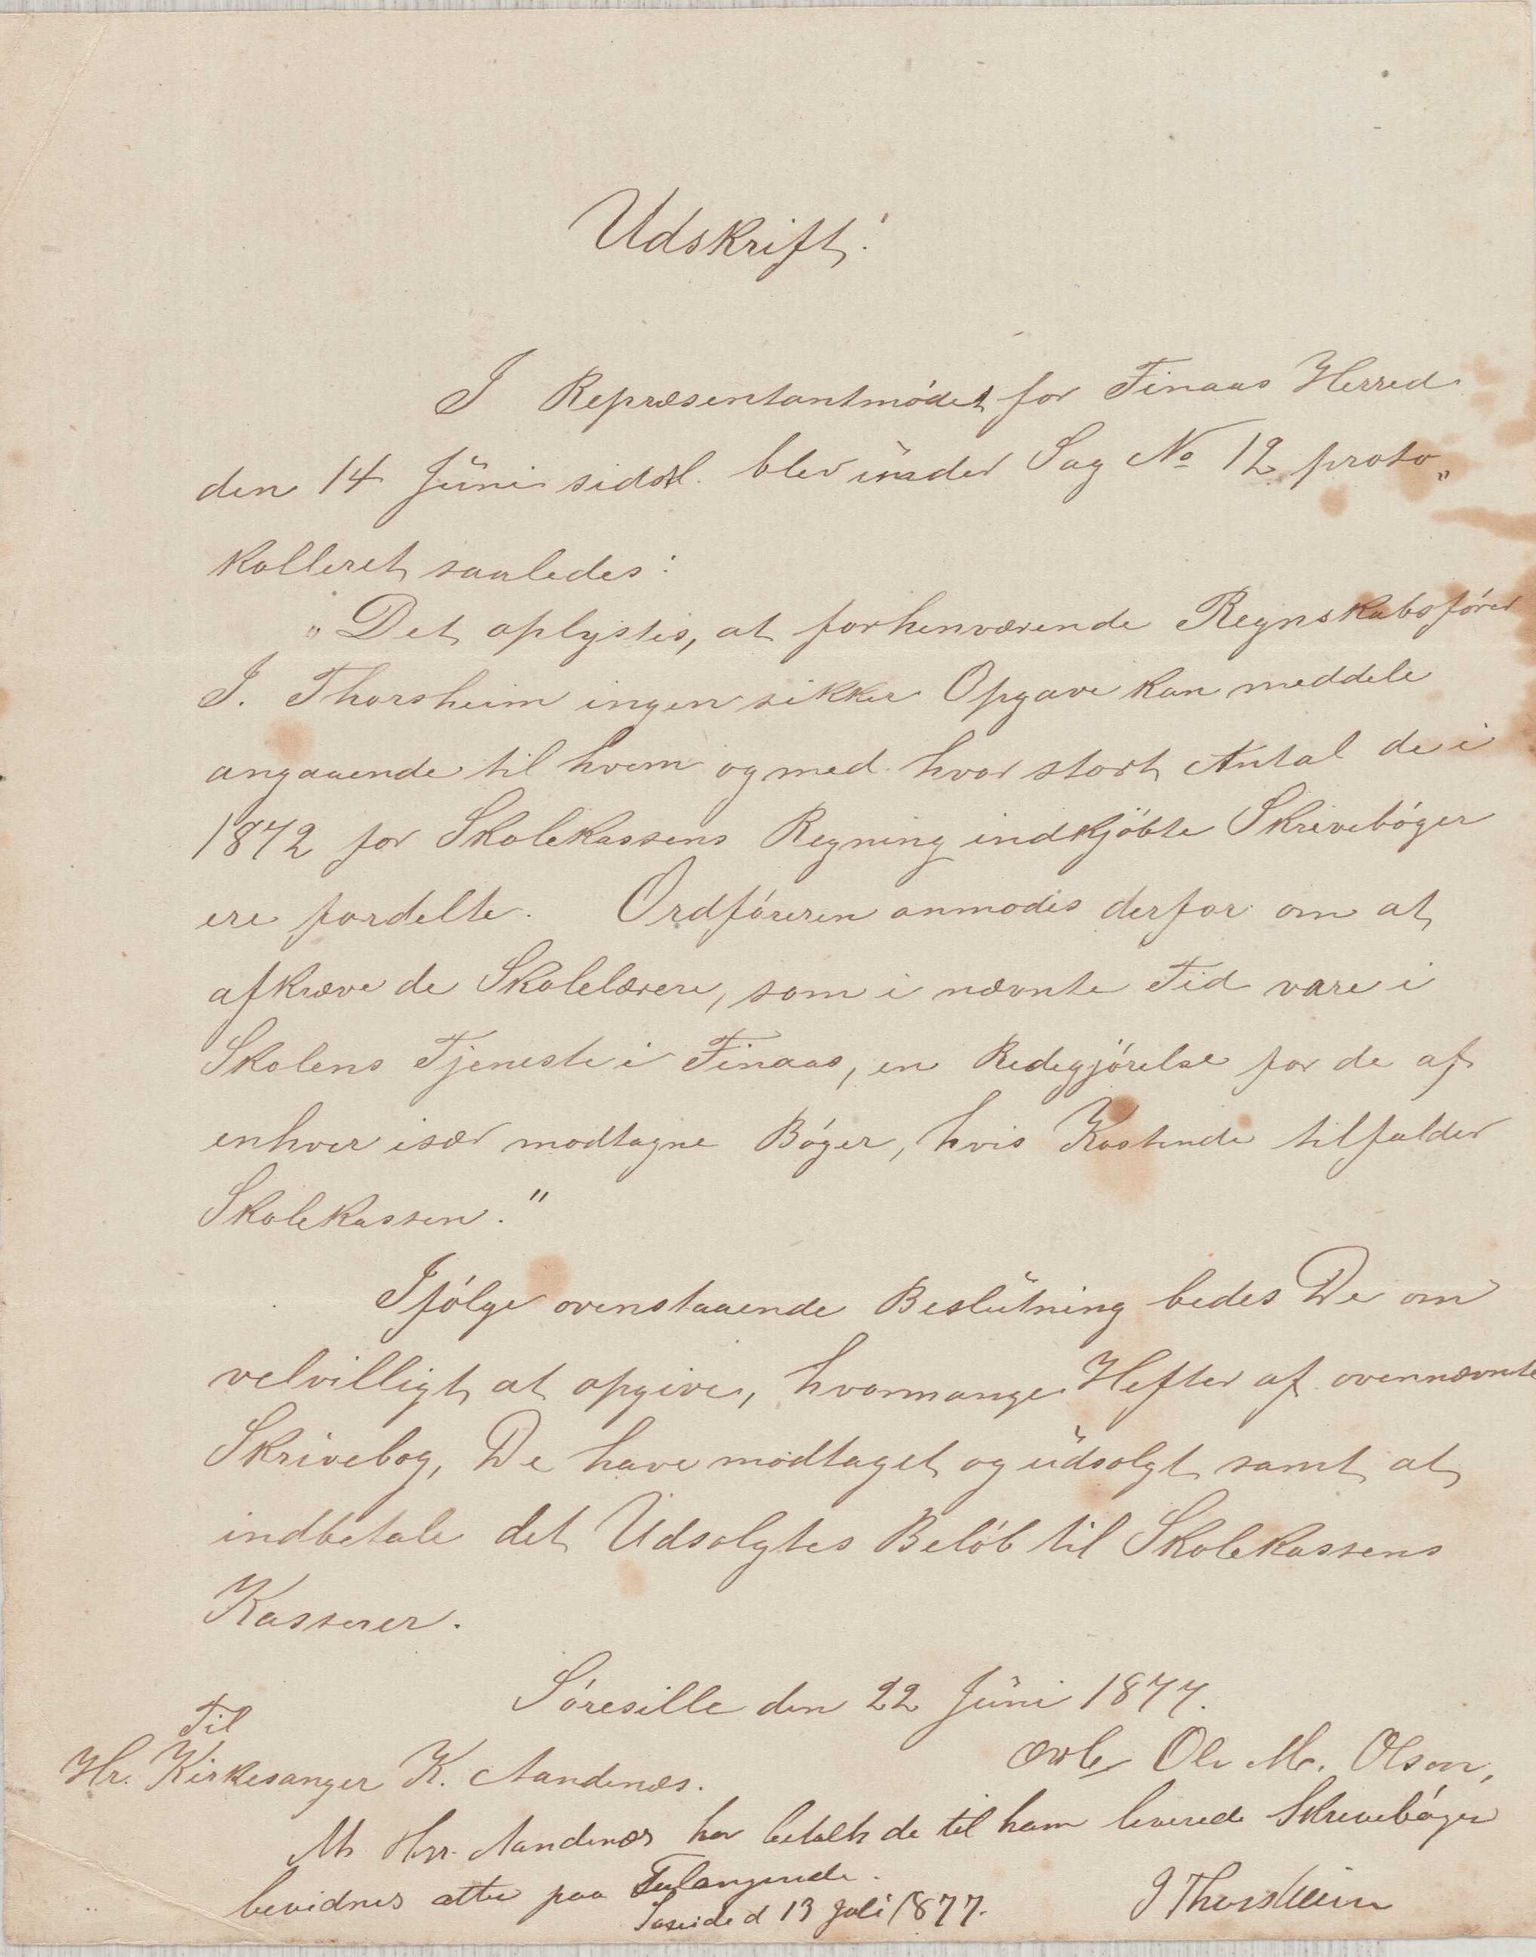 Udskrift:
I Repræsentantmødet for Finaas Herred
den 14 Juni sidstl. blev under Sag No 12 proto„
kolleret saaledes:
„Det oplystes, at forhenværende Regnskabsfører
J. Thorsheim ingen sikker Opgave kan meddele
angaaende til hvem og med hvor stort Antal de i
1872 for Skolekassens Regning indkjøbte Skrivebøger
ere fordelte. Ordføreren anmodes derfor om at
afkræve de Skolelærere, som i nævnte Tid vare i
Skolens Tjeneste i Finaas, en Redegjørelse for de af
enhver især modtagne Bøger, hvis Kostende tilfalder
Skolekassen."
Ifølge ovenstaaende Beslutning bedes De om
velvilligt at opgive, hvormange Hefter af ovennævnte
Skrivebog, De have modtaget og udsolgt samt at
indbetale det Udsolgtes Beløb til Skolekassens
Kasserer.
Søresille den 22 Juni 1877.
Til
Ole M. Olson,
Hr. Kirkesanger K. Aandenæs.
At Hrr. Aandenæs har betalt de til ham leverede Skrivebøger
bevidnes efter paa Forlangende.
d 13 Juli 1877.
J Thorsheim